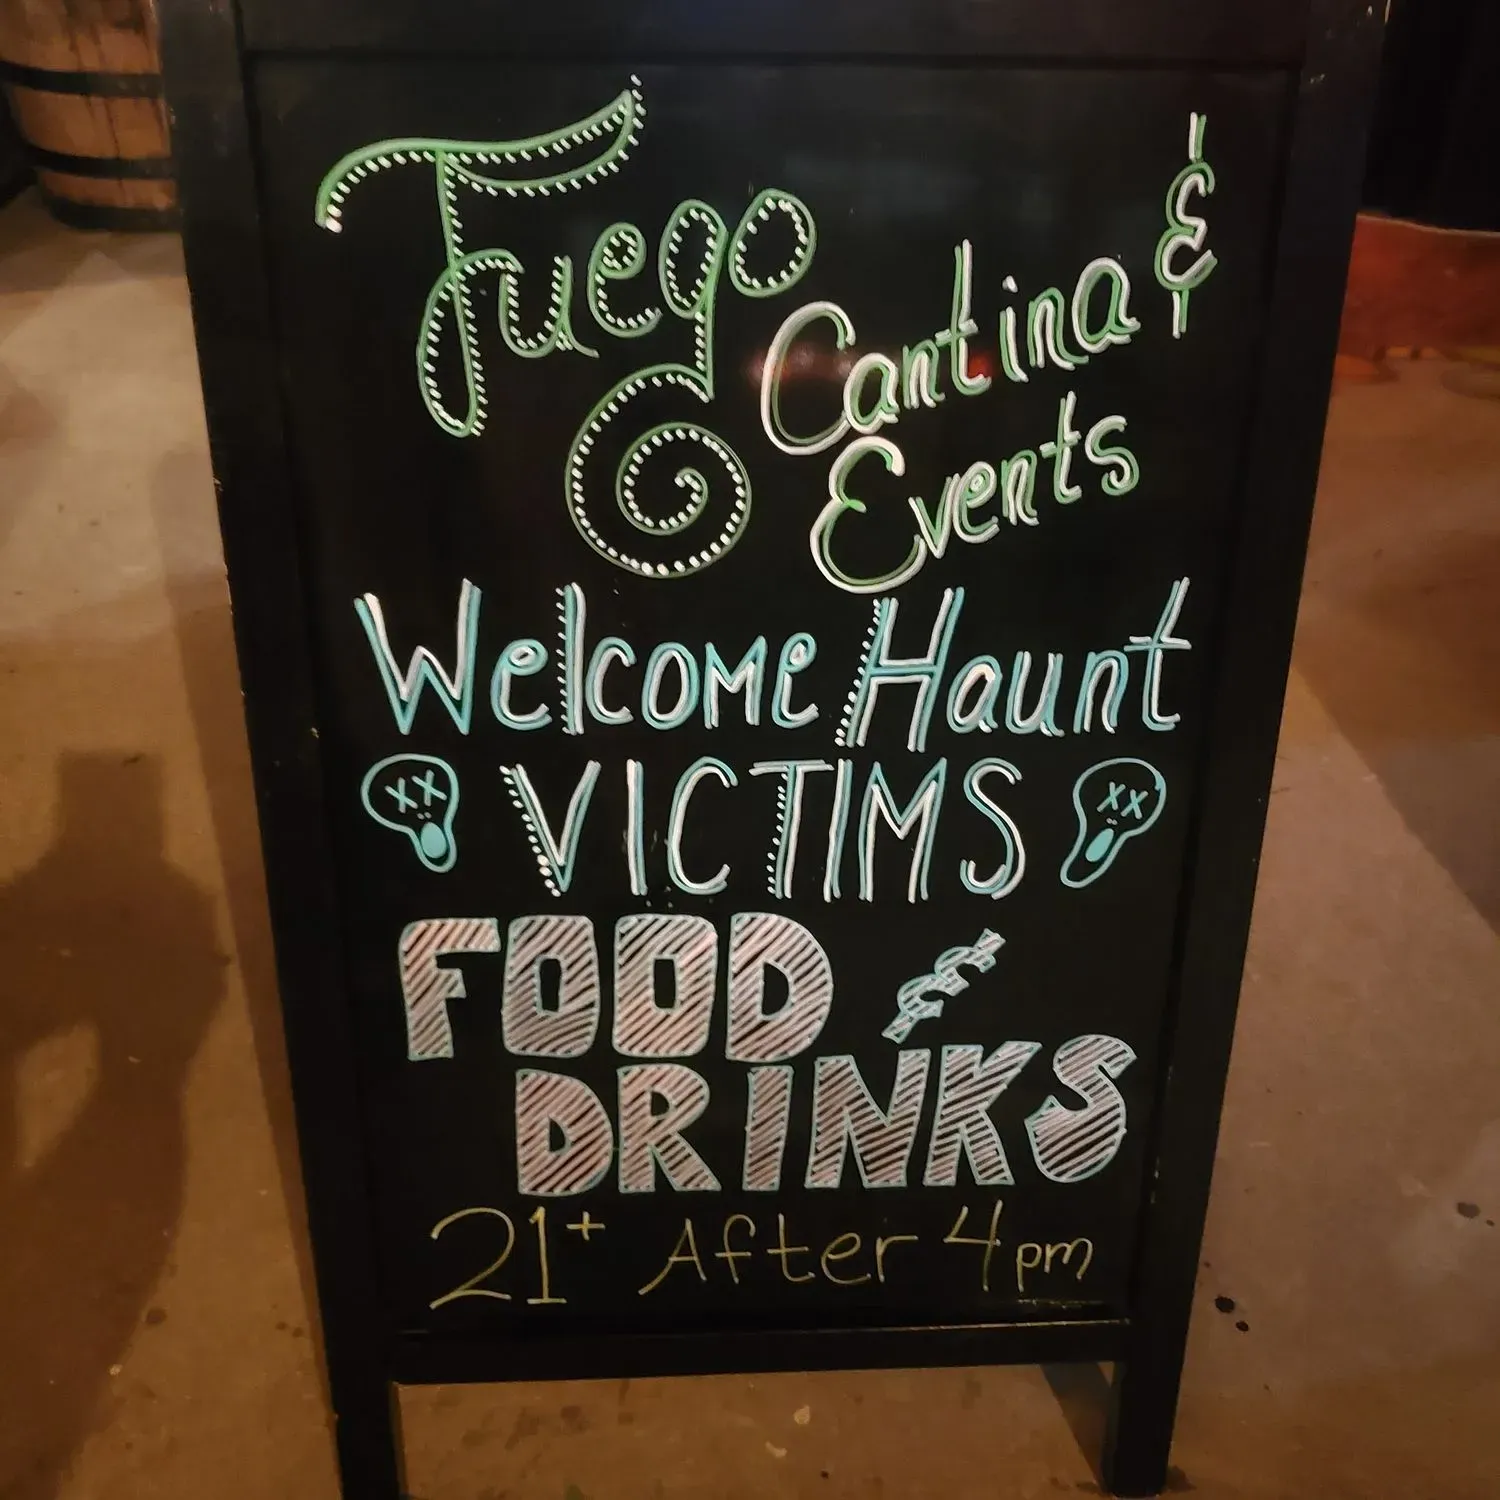 Fuego
Cantina &
Events
Welcome Haunt
VICTIMS
FOOD &
DRINKS
21+ After 4pm